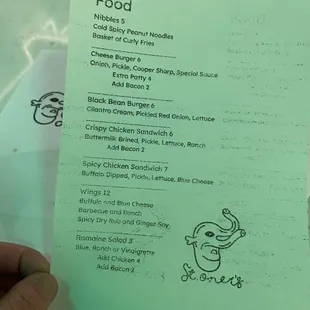 Food
Nibbles 5
Cold Spicy Peanut Noodles
Basket of Curly Fries
Cheese Burger 6
Onion, Pickle, Cooper Sharp, Special Sauce
Extra Patty 4
Add Bacon 2
Black Bean Burger 6
Cilantro Cream, Pickled Red Onion, Lettuce
Crispy Chicken Sandwich 6
Buttermilk Brined, Pickle, Lettuce, Ranch
Add Bacon 2
Spicy Chicken Sandwich 7
Buffalo Dipped, Pickle, Lettuce, Blue Cheese
Wings 12
Buffalo and Blue Cheese
Barbecue and Ranch
Spicy Dry Rub and Ginger Soy
Romaine Salad 8
Blue, Ranch or Vinaigrette
Add Chicken 4
Add Bacon 2
St. Oner's